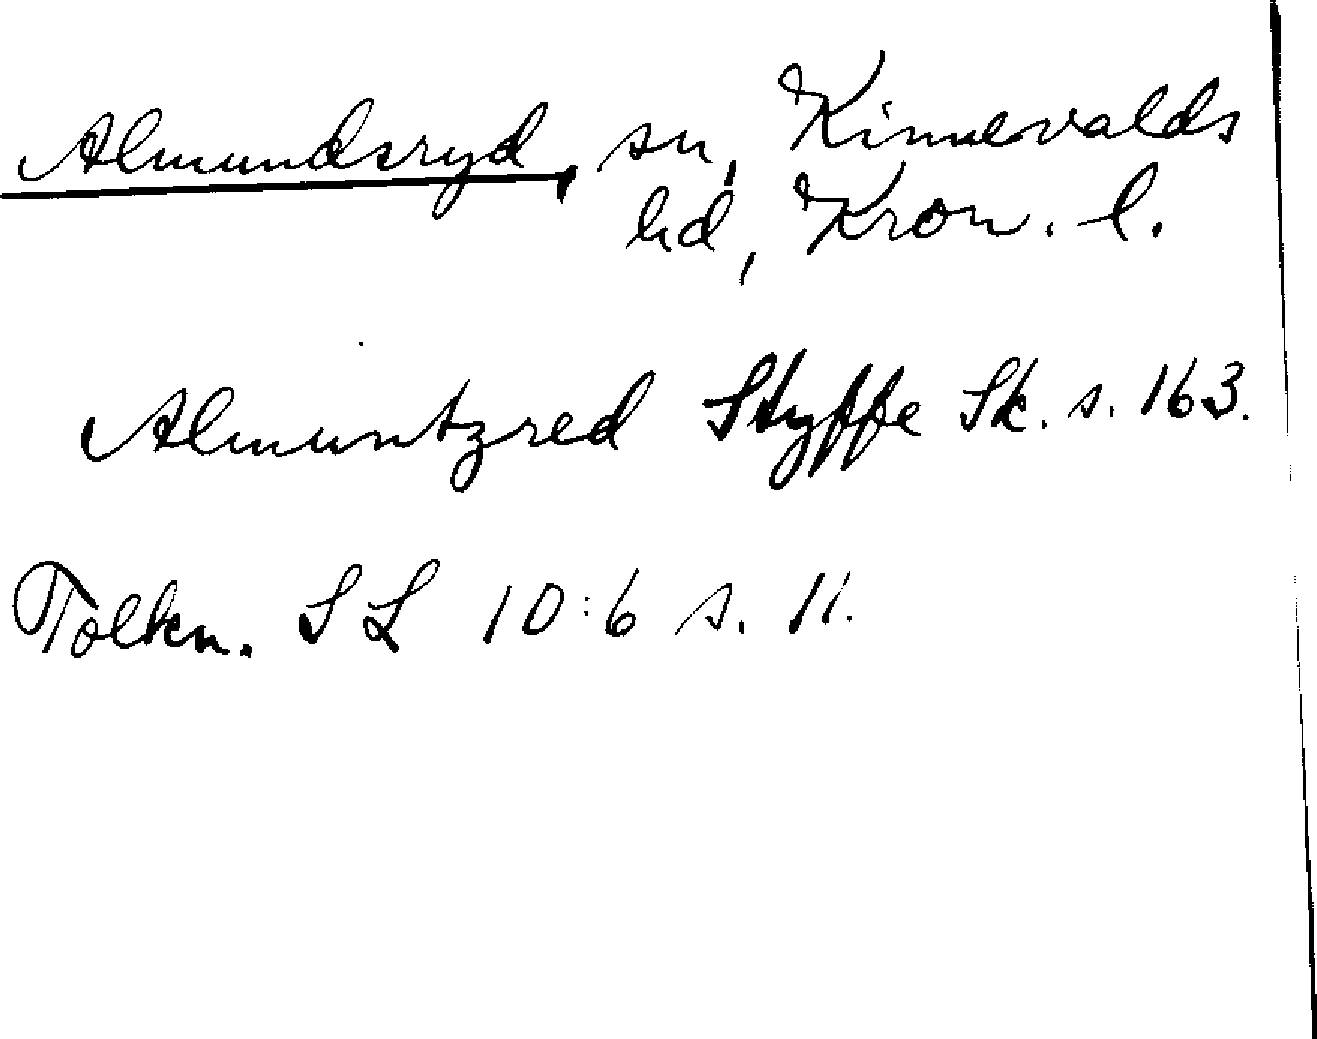 Almundsryd, sn, Kinnevalds
hd, Kron. l.
Almuntzred Styffe Sk. s. 163.
Tolkn. SL 10:6 s. 11.